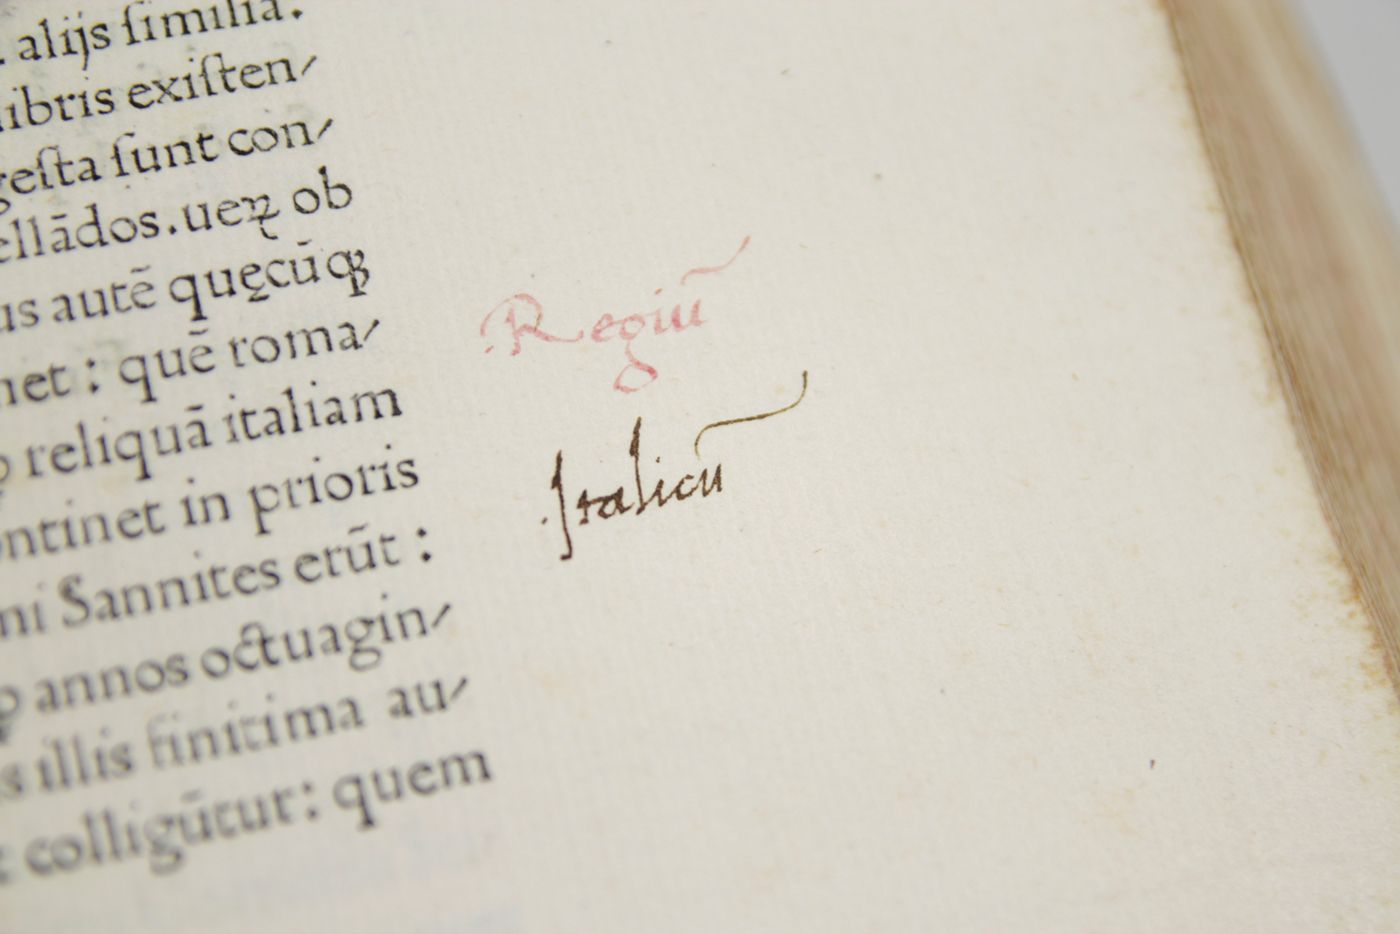 alijs ſimilia.
libris exiſten⸗
geſta ſunt con⸗
ellādos. ueꝝ ob
us autē quęcūqꝫ
net : quē roma⸗
reliquā italiam
ontinet in prioris
ni Sannites erūt :
annos octuagin⸗
s illis finitima au⸗
colligūtur : quem
Regiū
Italicū